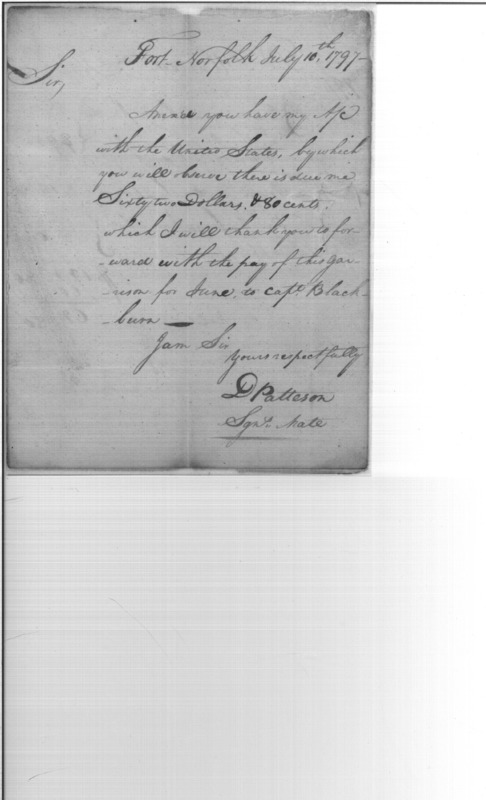 Fort Norfolk July 10th. 1797-
Sir,
Annex'd you have my A/c
with the United States, by which
you will observe there is due me
Sixty two Dollars, & 80 cents.
which I will thank you to for-
-ward with the pay of this Gar-
-rison for June, to Capt. Black
-burn —
I am Sir
Yours respectfully
D Patteson
Sgns. Mate